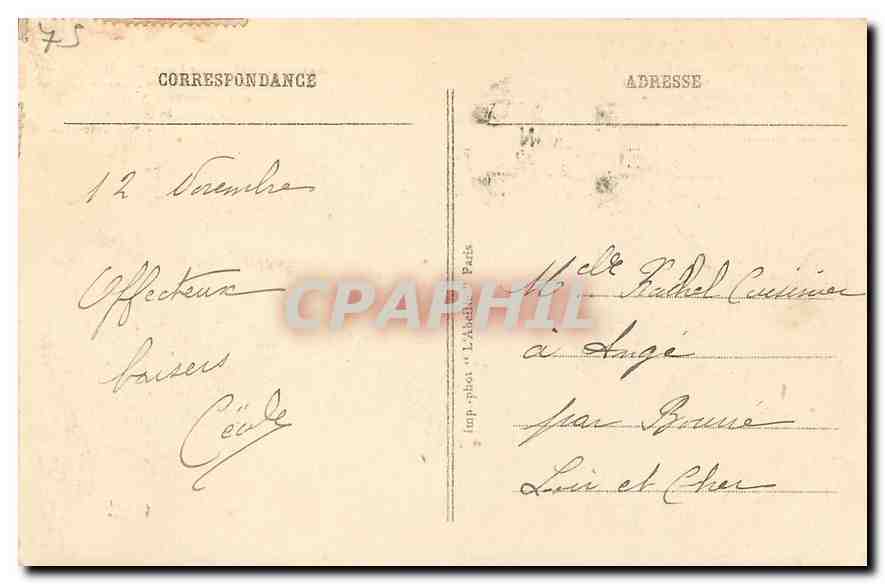 75
CORRESPONDANCE
12 Novembre
Affectueux
baisers
Cécile
ADRESSE
Melle Rachel Cuisinier
à Angé
par Bourré
Loir et Cher
Imp.-phot "L'Abeille" Paris
CPAPHIL